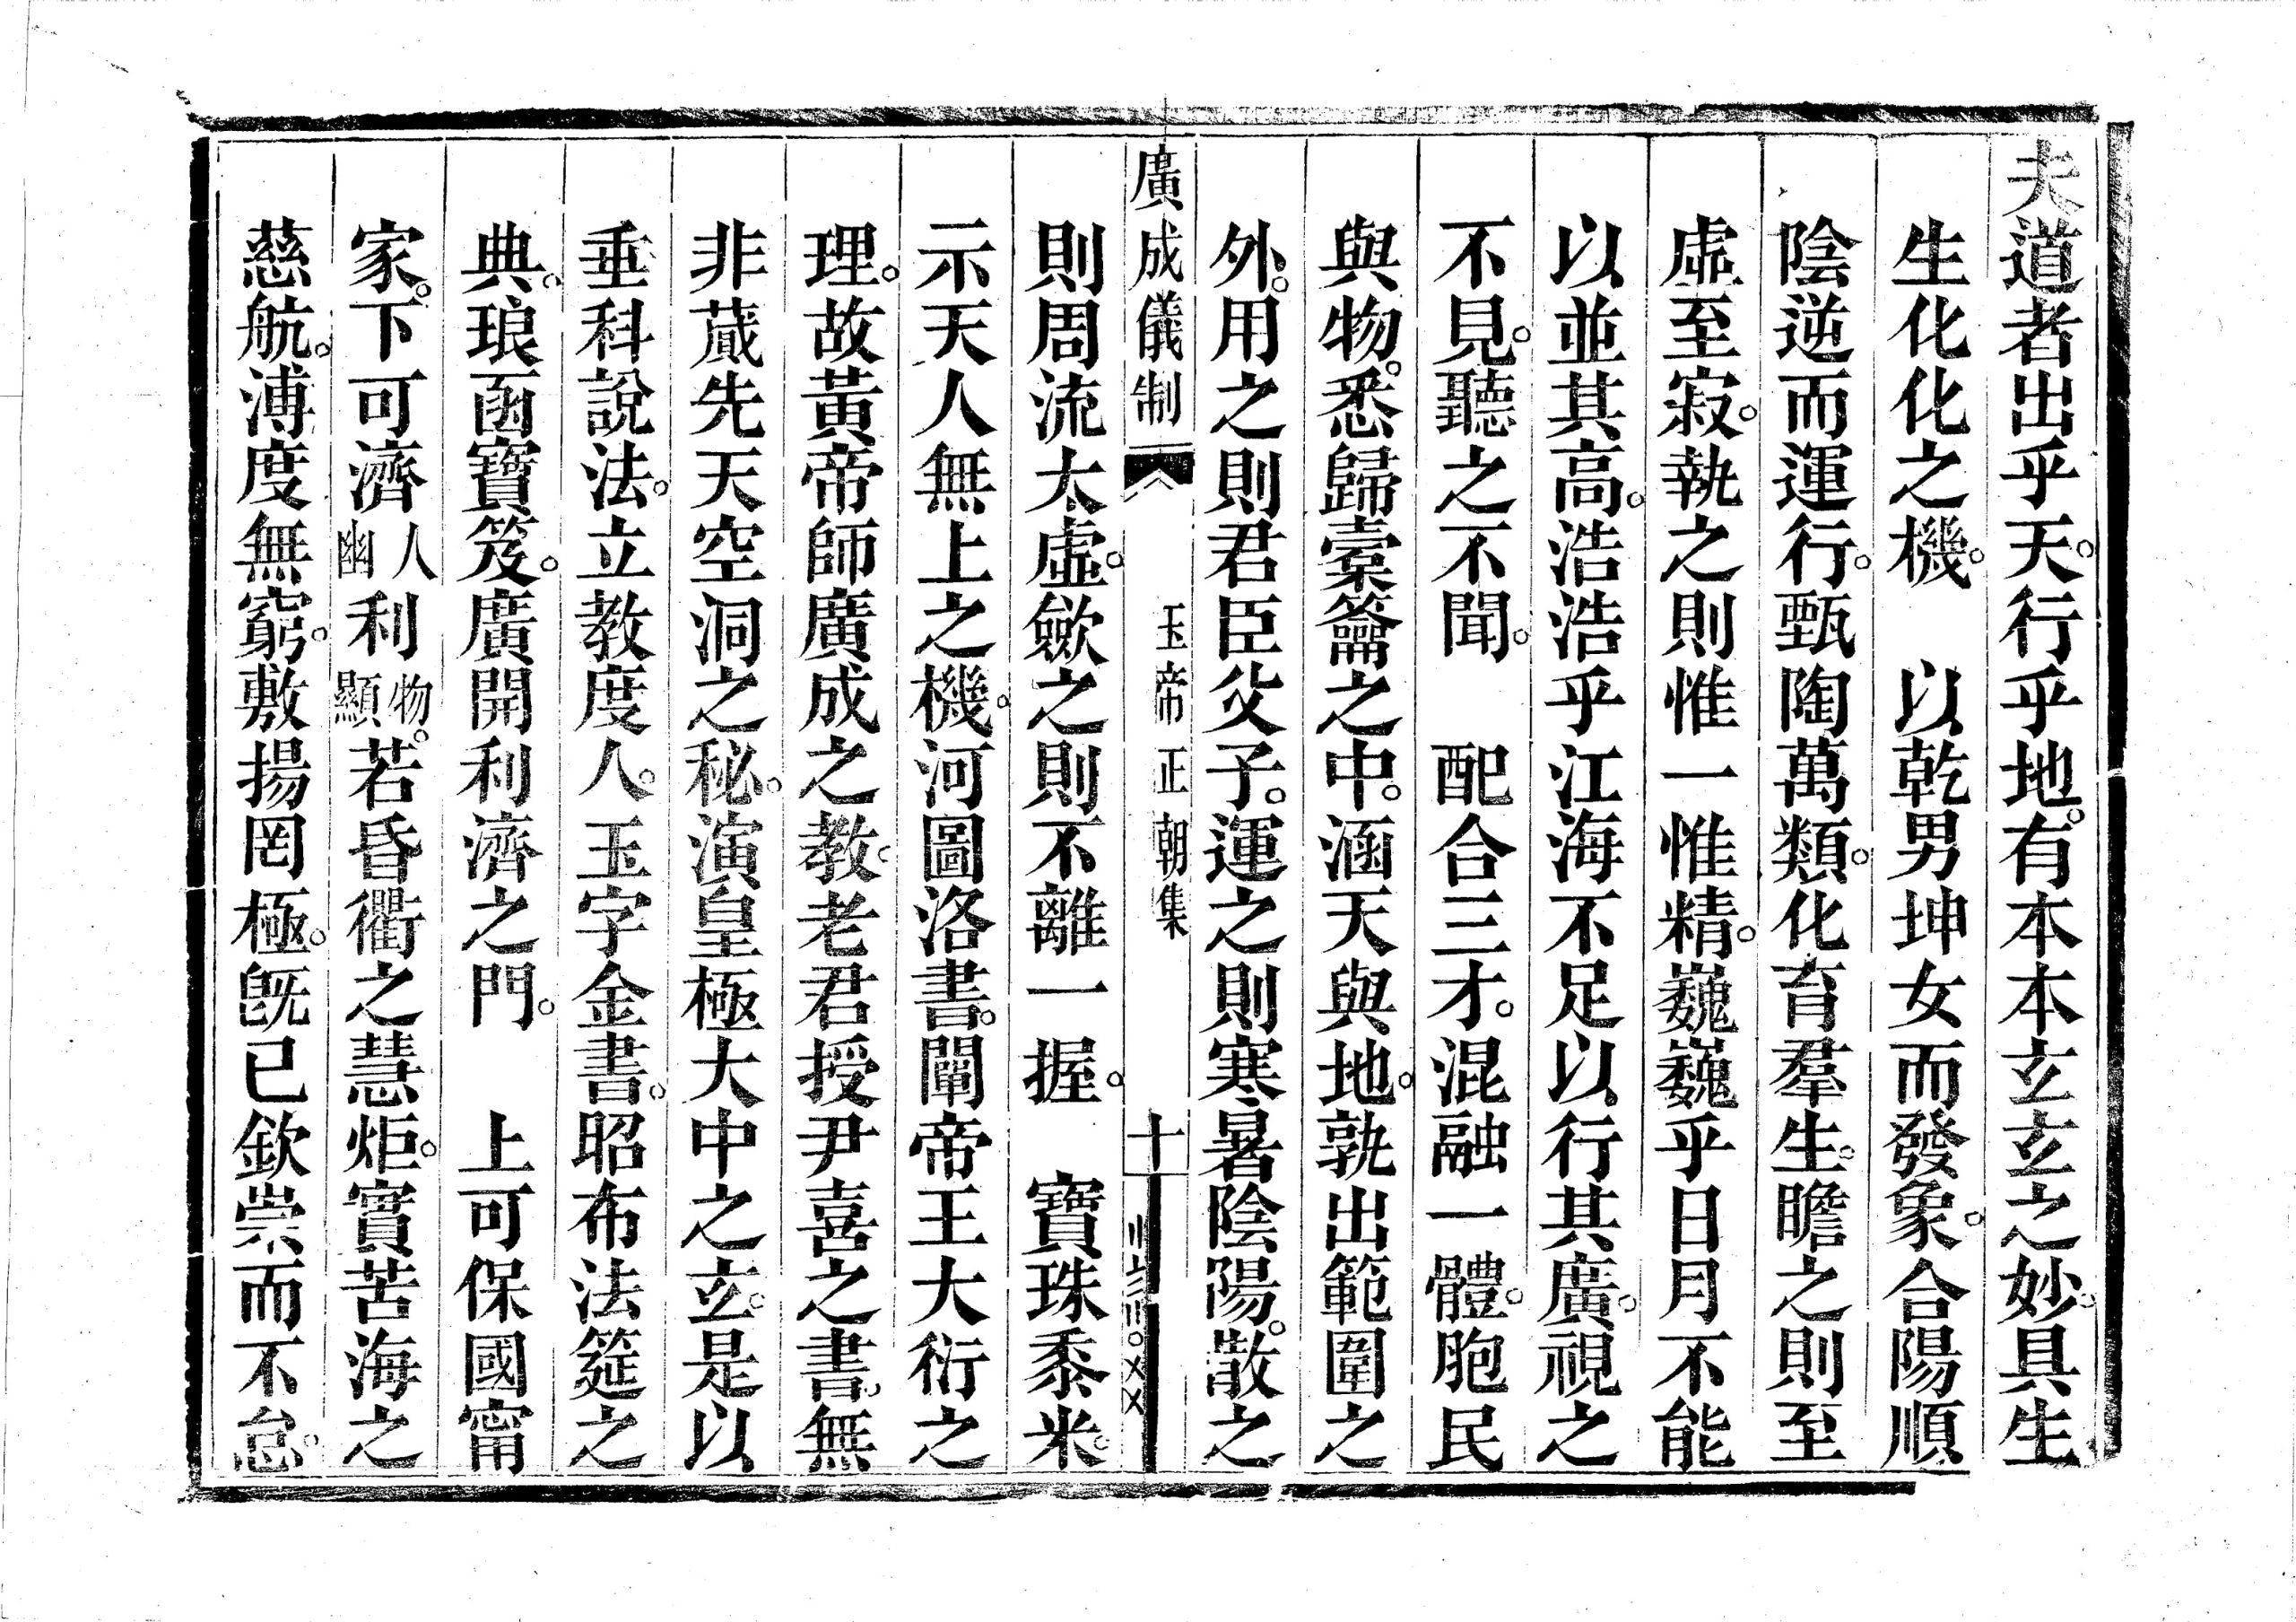 夫道者出乎天。行乎地。有本本玄玄之妙。具生
生化化之機。　以乾男坤女而發象。合陽順
陰逆而運行。甄陶萬類。化育羣生。瞻之則至
虛至寂。執之則惟一惟精。巍巍乎日月不能
以並其高。浩浩乎江海不足以行其廣。視之
不見。聽之不聞。　配合三才。混融一體。胞民
與物。悉歸橐籥之中。涵天與地。孰出範圍之
外。用之則君臣父子。運之則寒暑陰陽。散之
廣成儀制　玉帝正朝集　十
則周流太虛。斂之則不離一握。　寶珠黍米。
示天人無上之機。河圖洛書。闡帝王大衍之
理。故黃帝師廣成之教。老君授尹喜之書。無
非蕆先天空洞之秘。演皇極大中之玄。是以
垂科說法。立教度人。玉字金書。昭布法筵之
典。琅函寶笈。廣開利濟之門。　上可保國甯
家。下可濟人幽利物顯。若昏衢之慧炬。實苦海之
慈航。溥度無窮。敷揚罔極。旣已欽崇而不怠。